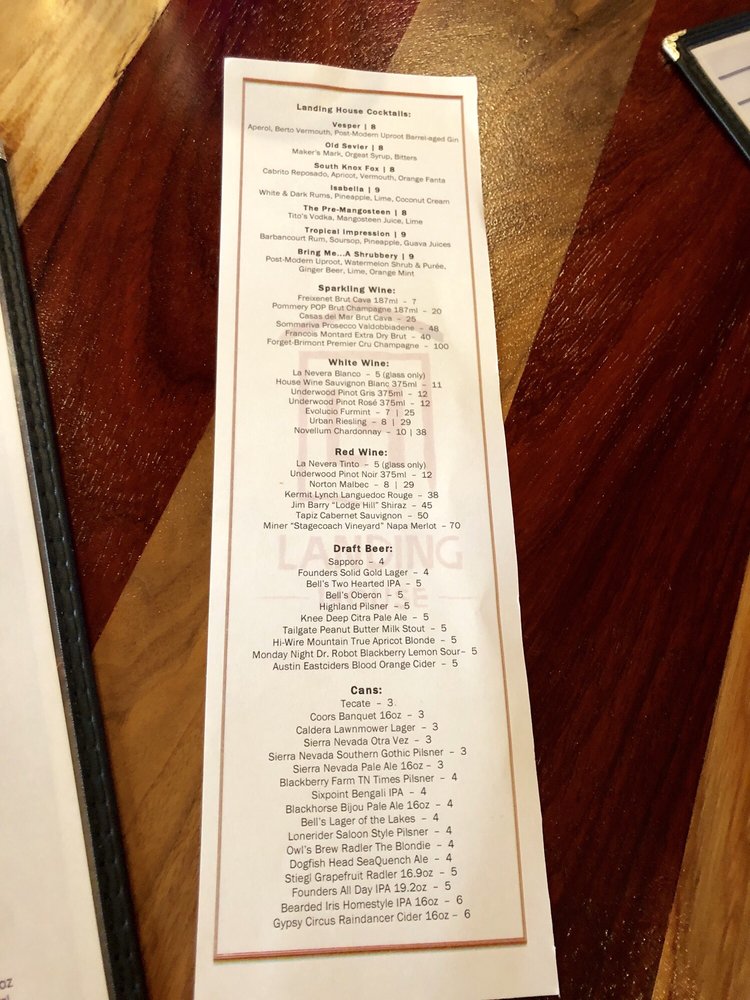 Landing House Cocktails:
Vesper | 8
Aperol, Berto Vermouth, Post-Modern Uproot Barrel-aged Gin
Old Sevier | 8
Maker's Mark, Orgeat Syrup, Bitters
South Knox Fox | 8
Cabrito Reposado, Apricot, Vermouth, Orange Fanta
Isabella | 9
White & Dark Rums, Pineapple, Lime, Coconut Cream
The Pre-Mangosteen | 8
Tito's Vodka, Mangosteen Juice, Lime
Tropical Impression | 9
Barbancourt Rum, Soursop, Pineapple, Guava Juices
Bring Me...A Shrubbery | 9
Post-Modern Uproot, Watermelon Shrub & Purée,
Ginger Beer, Lime, Orange Mint
Sparkling Wine:
Freixenet Brut Cava 187ml – 7
Pommery POP Brut Champagne 187ml – 20
Casas del Mar Brut Cava – 25
Sommariva Prosecco Valdobbiadene – 48
Francois Montard Extra Dry Brut – 40
Forget-Brimont Premier Cru Champagne – 100
White Wine:
La Nevera Blanco – 5 (glass only)
House Wine Sauvignon Blanc 375ml – 11
Underwood Pinot Gris 375ml – 12
Underwood Pinot Rosé 375ml – 12
Evolucio Furmint – 7 | 25
Urban Riesling – 8 | 29
Novellum Chardonnay – 10 | 38
Red Wine:
La Nevera Tinto – 5 (glass only)
Underwood Pinot Noir 375ml – 12
Norton Malbec – 8 | 29
Kermit Lynch Languedoc Rouge – 38
Jim Barry "Lodge Hill" Shiraz – 45
Tapiz Cabernet Sauvignon – 50
Miner "Stagecoach Vineyard" Napa Merlot – 70
LANDING
Draft Beer:
Sapporo – 4
Founders Solid Gold Lager – 4
Bell's Two Hearted IPA – 5
Bell's Oberon – 5
Highland Pilsner – 5
Knee Deep Citra Pale Ale – 5
Tailgate Peanut Butter Milk Stout – 5
Hi-Wire Mountain True Apricot Blonde – 5
Monday Night Dr. Robot Blackberry Lemon Sour– 5
Austin Eastciders Blood Orange Cider – 5
Cans:
Tecate – 3
Coors Banquet 16oz – 3
Caldera Lawnmower Lager – 3
Sierra Nevada Otra Vez – 3
Sierra Nevada Southern Gothic Pilsner – 3
Sierra Nevada Pale Ale 16oz – 3
Blackberry Farm TN Times Pilsner – 4
Sixpoint Bengali IPA – 4
Blackhorse Bijou Pale Ale 16oz – 4
Bell's Lager of the Lakes – 4
Lonerider Saloon Style Pilsner – 4
Owl's Brew Radler The Blondie – 4
Dogfish Head SeaQuench Ale – 4
Stiegl Grapefruit Radler 16.9oz – 5
Founders All Day IPA 19.2oz – 5
Bearded Iris Homestyle IPA 16oz – 6
Gypsy Circus Raindancer Cider 16oz – 6
oz